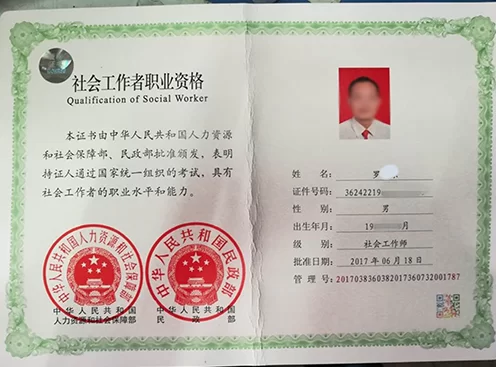 社会工作者职业资格
Qualification of Social Worker
本证书由中华人民共和国人力资源
和社会保障部、民政部批准颁发，表明
持证人通过国家统一组织的考试，具有
社会工作者的职业水平和能力。
中华人民共和国人力资源和社会保障部
中华人民共和国民政部
中华人民共和国
人力资源和社会保障部
中华人民共和国
民政部
姓名：罗
证件号码：36242219
性别：男
出生年月：19 月
级别：社会工作师
批准日期：2017 年 06 月 18 日
管理号：20170383603820173607320017​87